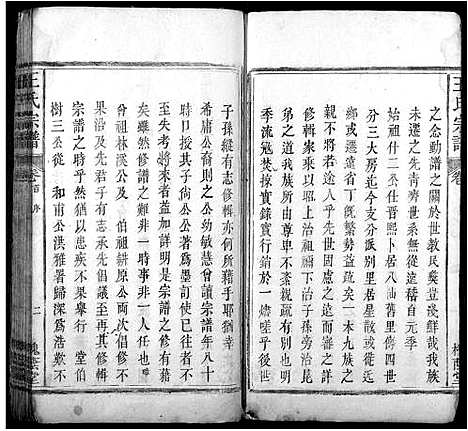 王氏宗譜
卷
之念動譜之關於世教民彜豈淺鮮哉我族
未遷之先青齊世系無從遠稽自元季
始祖廿二公仕晋熙卜居八汕舊里後世
分三大房迄今支分派別里居星散或遷
鄉或遷遠省丁旣繁勢甚疏矣一本九族
之戚不紊親疏有別以上治祖禰下治子孫旁治昆
弟之道我族所由尊卑不遠而審之詳
季流寇焚掠實錄實行銷於一燼嗟乎後
子孫縱有志修輯亦何所藉手耶猶幸
希庸公裔則之公幼敏慧曾讀宗譜年八十
時口授其子公公著爲墨訂使已往者不
至失考將來者益加詳明是宗譜之修有藉
矣雖然修譜之難非一時事非一人任也
曾祖林溪公及 伯祖耕原公兩次倡修不
果沿及先君子有志承先倡議至再其修輯
宗譜之事公任之稽以患疾不果舉 堂伯
樹三公從 和甫公洪雅署歸深爲浩歎不
王氏宗譜
卷首 序
二
槐蔭堂